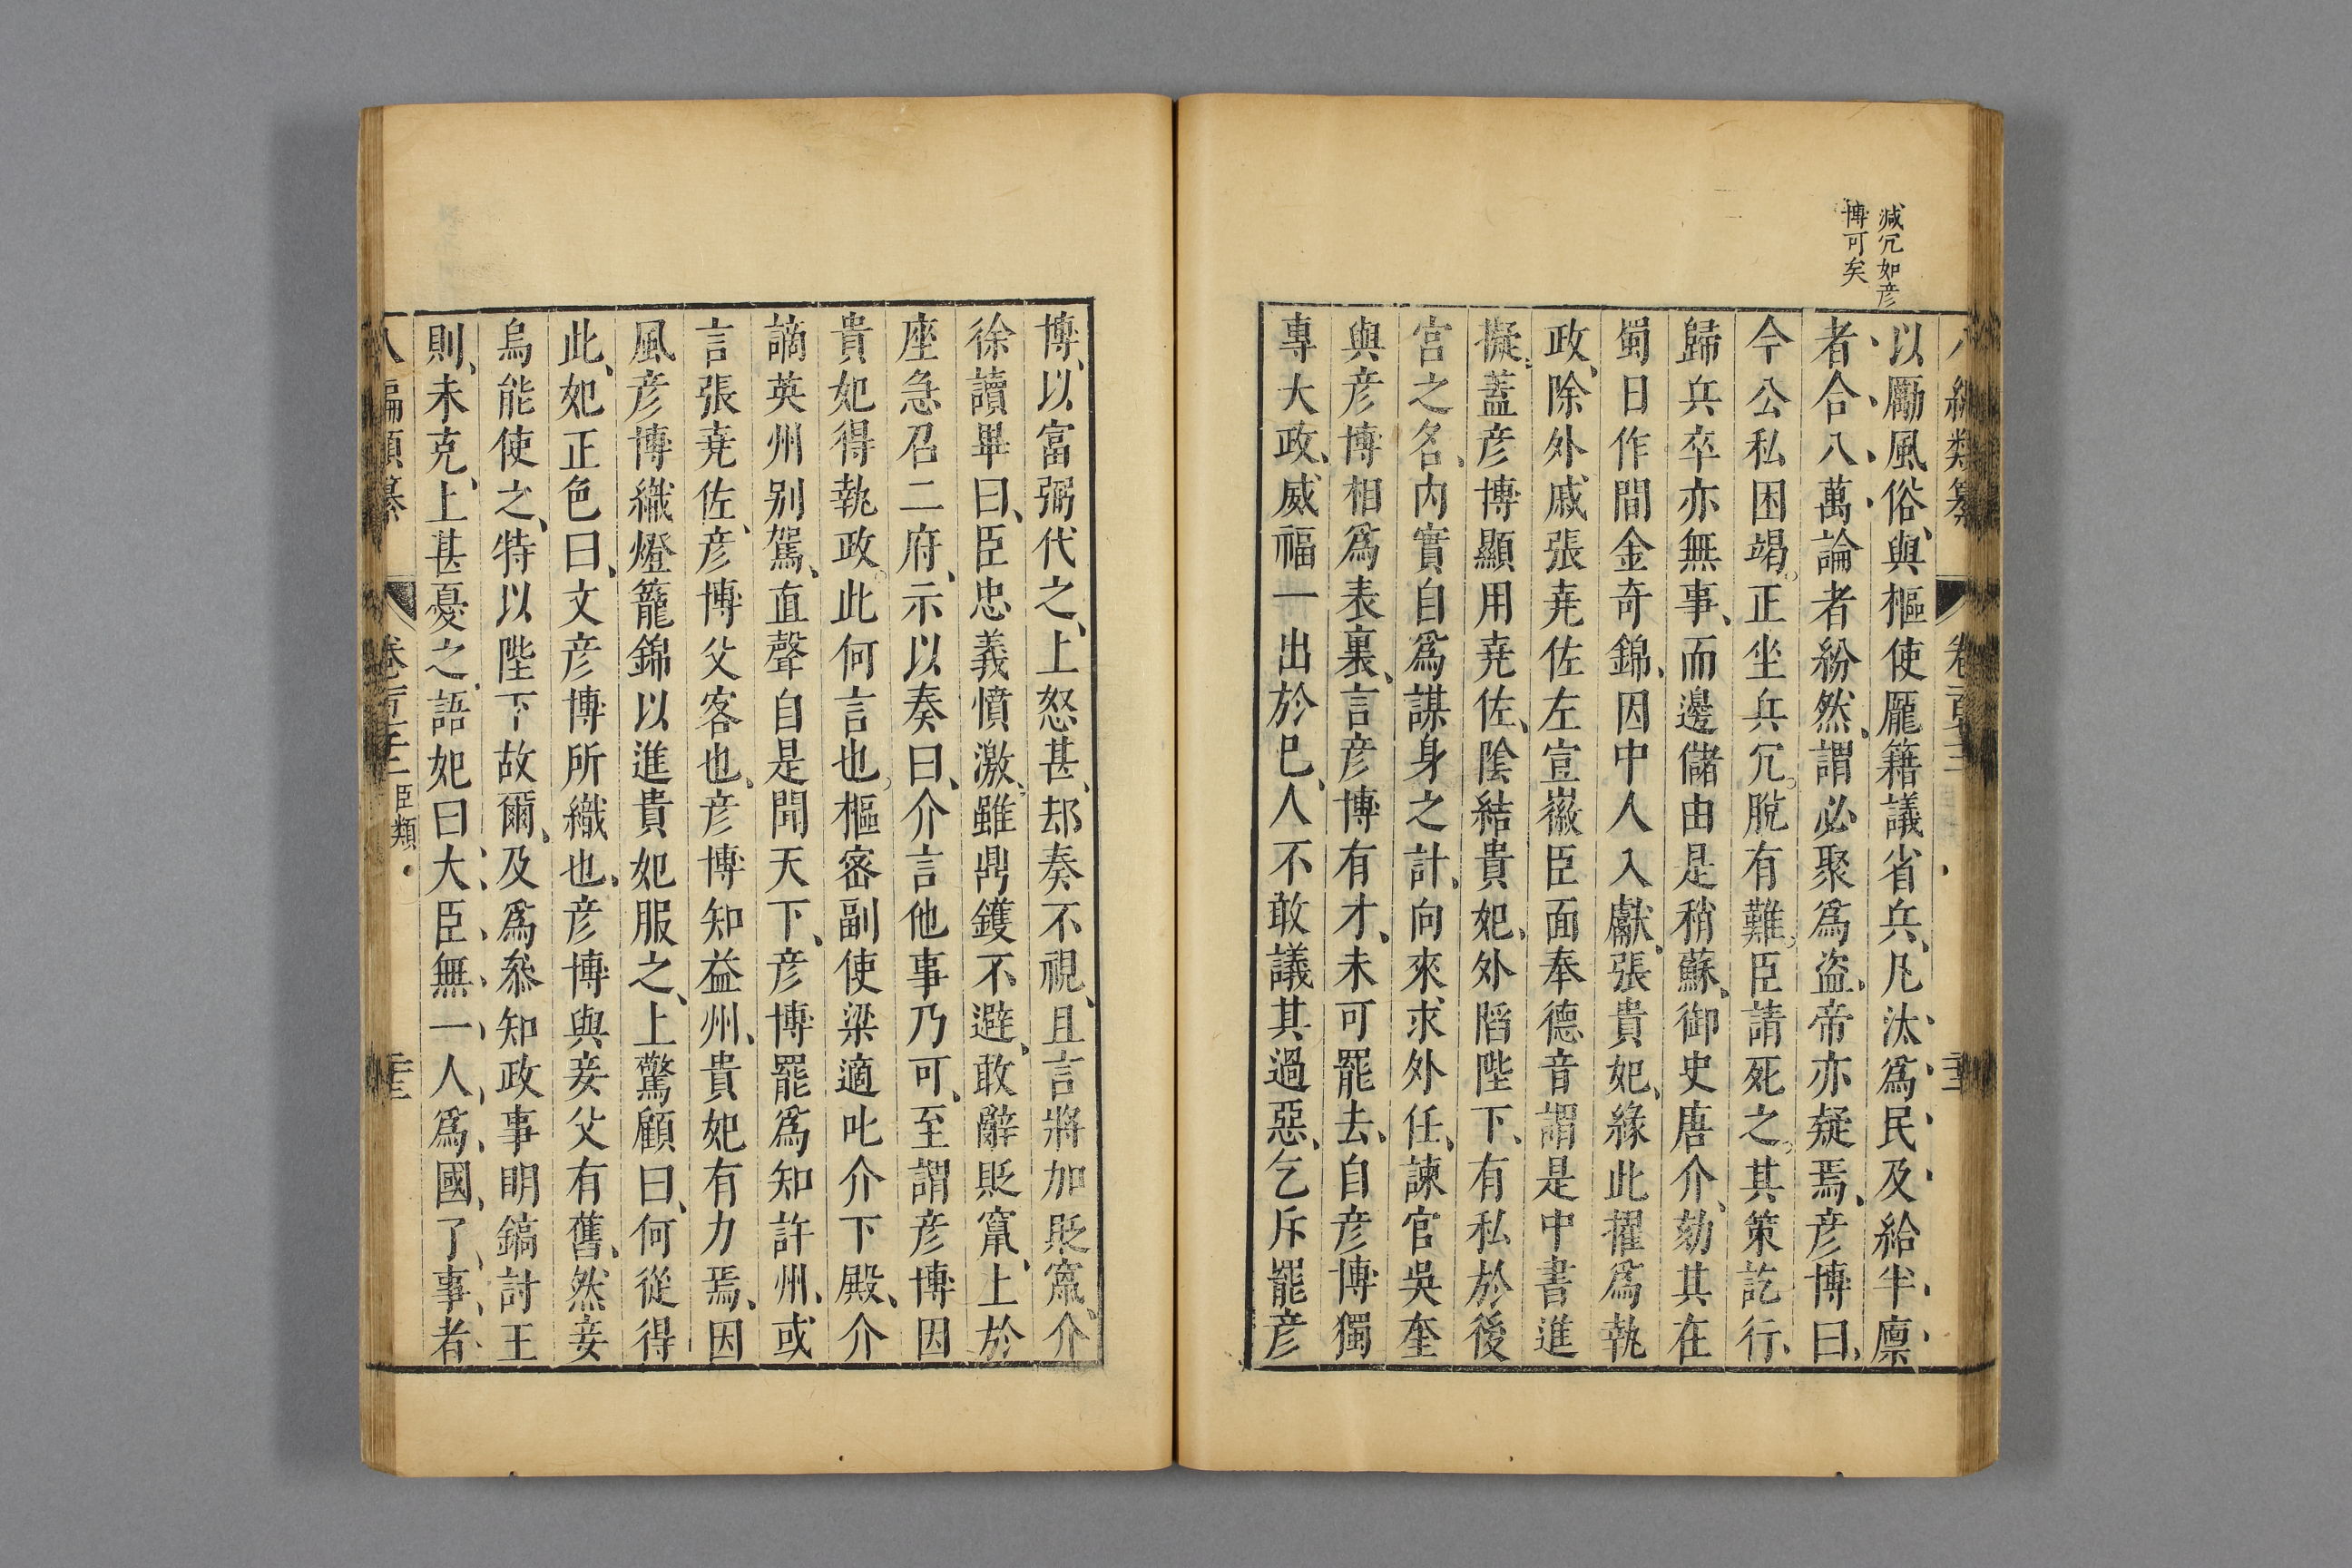 減冗如彦
博可矣
以勵風俗、與樞使龎籍議省兵、凡汰爲民及給半廪
者合八萬論者紛然、謂必聚爲盗、帝亦疑焉、彦博曰、
今公私困竭。正坐兵冗。脫有難。臣請死之。其策訖行、
歸兵卒亦無事、而邊儲由是稍蘇、御史唐介、劾其在
蜀日作間金奇錦、因中人入獻、張貴妃、緣此擢爲執
政、除外戚張堯佐左宣徽臣面奉德音謂是中書進
擬、蓋彦博顯用堯佐、陰結貴妃、外䧟陛下、有私於後
宮之名、内實自爲謀身之計、向來求外任、諫官吳奎
與彦博相爲表裏、言彦博有才、未可罷去、自彦博獨
專大政、威福一出於巳、人不敢議其過惡、乞斥罷彦
博、以富弼代之、上怒甚、却奏不視、且言將加貶竄、介
徐讀畢曰、臣忠義憤激、雖鼎鑊不避、敢辭貶竄、上於
座急召二府、示以奏曰、介言他事乃可、至謂彦博因
貴妃得執政。此何言也。樞密副使梁適叱介下殿、介
謫英州别駕、直聲自是聞天下、彦博罷爲知許州、或
言張堯佐、彦博父客也、彦博知益州、貴妃有力焉、因
風彦博織燈籠錦以進貴妃服之、上驚顧曰、何從得
此、妃正色曰、文彦博所織也、彦博與妾父有舊、然妾
烏能使之、特以陛下故爾、及爲叅知政事明鎬討王
則、未克、上甚憂之、語妃曰大臣無一人爲國了事者
八編類纂
臣類